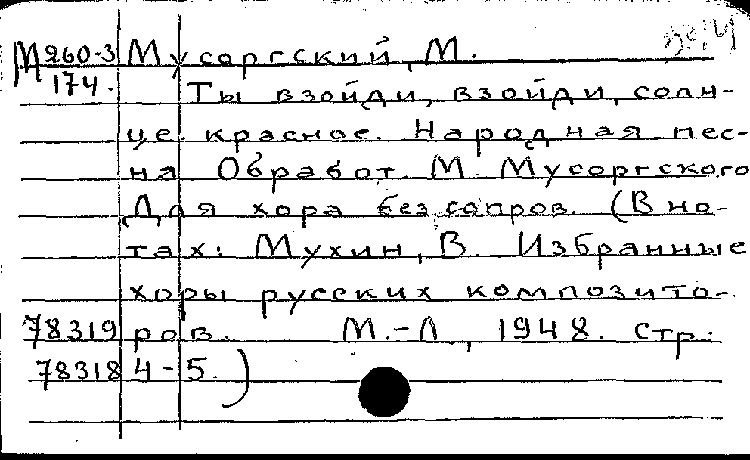 М260-3 Мусоргский, М.
174. Ты взойди, взойди, солн-
це красное. Народная пес-
ня Обработ. М. Мусоргского
Для хора без сопров. (В но-
тах: Мухин, В. Избранные
хоры русских композито-
78319 ров. М.-Л., 1948. стр.
78318 4-5.)